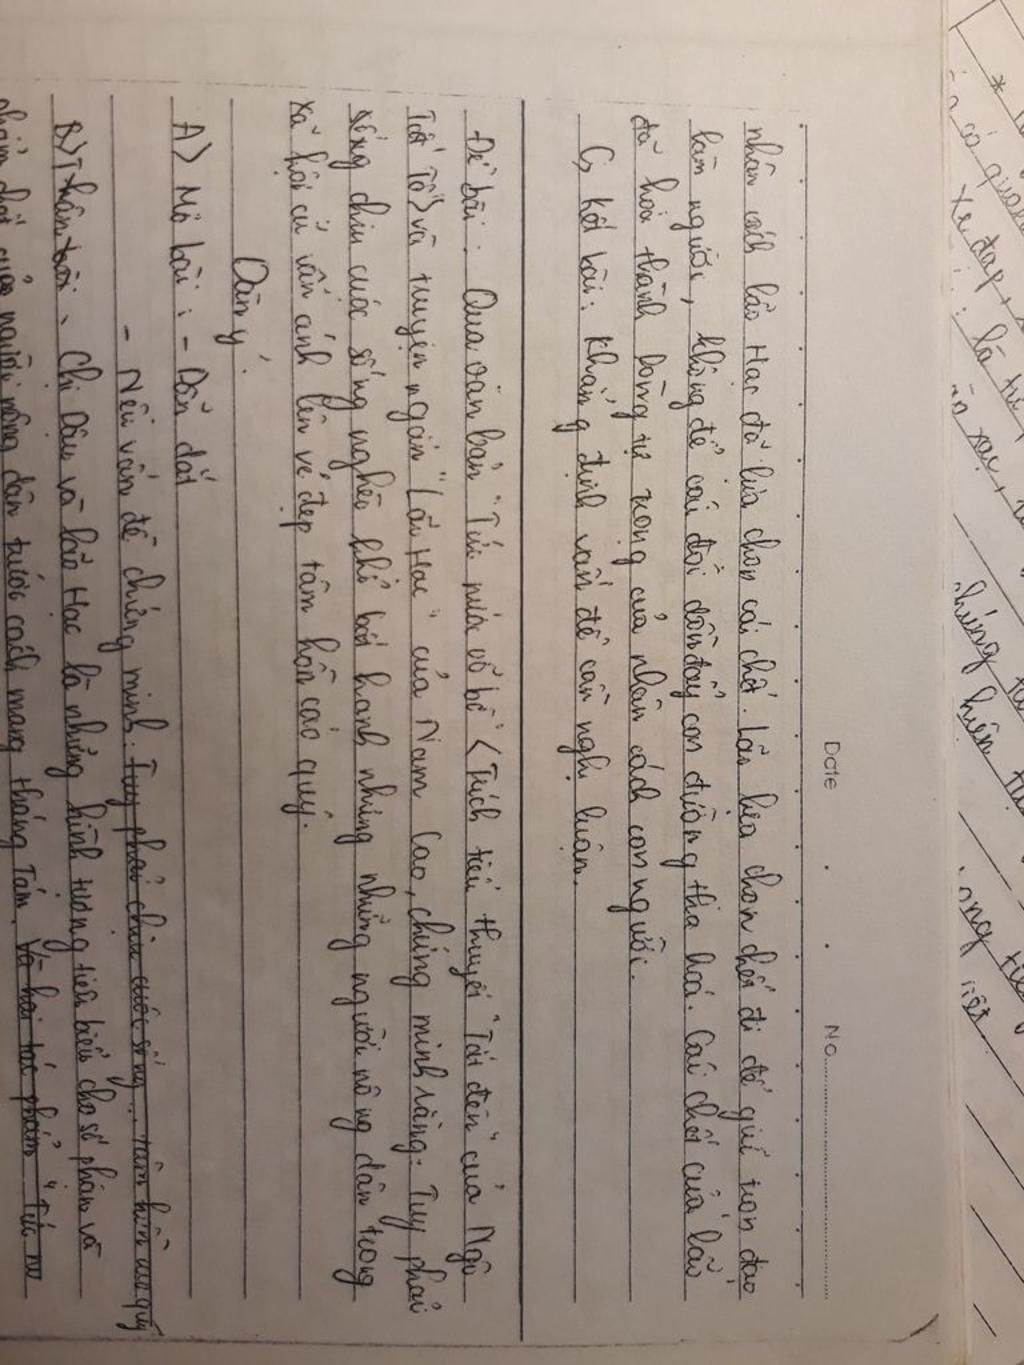 Date No.
nhân cách lão Hạc đã lựa chọn cái chết. Lão lựa chọn chết đi để giữ trọn đạo
làm người, không để cái đói dồn đẩy con đường tha hoá. Cái chết của lão
đã hoá thành lòng tự trọng của nhân cách con người.
C, Kết bài: Khẳng định vấn đề cần nghị luận.
Đề bài: Qua văn bản "Tức nước vỡ bờ" < Trích tiểu thuyết "Tắt đèn" của Ngô
Tất Tố> và truyện ngắn "Lão Hạc" của Nam Cao, chứng minh rằng: Tuy phải
sống chịu cuộc sống nghèo khổ bất hạnh nhưng những người nông dân trong
xã hội cũ vẫn ánh lên vẻ đẹp tâm hồn cao quý.
Dàn ý.
A> Mở bài: - Dẫn dắt
- Nêu vấn đề chứng minh. Tuy phải chịu cuộc sống... tâm hồn cao quý
B> Thân bài. Chị Dậu và lão Hạc là những hình tượng tiêu biểu cho số phận và
phẩm chất của người nông dân trước cách mạng tháng Tám. Và hai tác phẩm "Tức nư
* 
có
xe đạp,
: là
xạc,
chứng
hiện